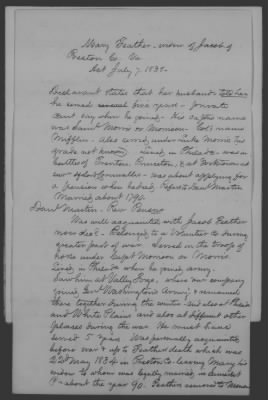 Mary Feather - widow of Jacob of
Preston Co. Va
Act July 7. 1838.
Declarant states that her husband told her
he served five years - private
Cant say when he joined - His Capts name
was Saml Morris or Monson - Col's name
Mifflin - Also served under Luke Morris his
grade not known - Lived in Philada - was in
battles of Trenton, Princeton, & at Yorktown at
surr of Ld Cornwallis - Was about applying for
a pension when he died, refers to Danl Martin
Married about 1790.
Danl Martin - Rev Penr
Was well acquainted with Jacob Feather
now decd - Belonged to a Volunteer Co during
greater part of war - Served in the troop of
horse under Capt Monson or Morris
Lived in Philada when he joined army -
Saw him at Valley Forge, where our company
joined Genl Washingtons Army, & remained
there together during the winter -
and White Plains and also at different other
places during the war - He must have
served 5 years - Was personally acquainted
before war & up to Feathers death which was
22d May 1834 in Preston Co - leaving Mary his
widow to whom was legally married, in
Pa about the year 90. Feather removed to